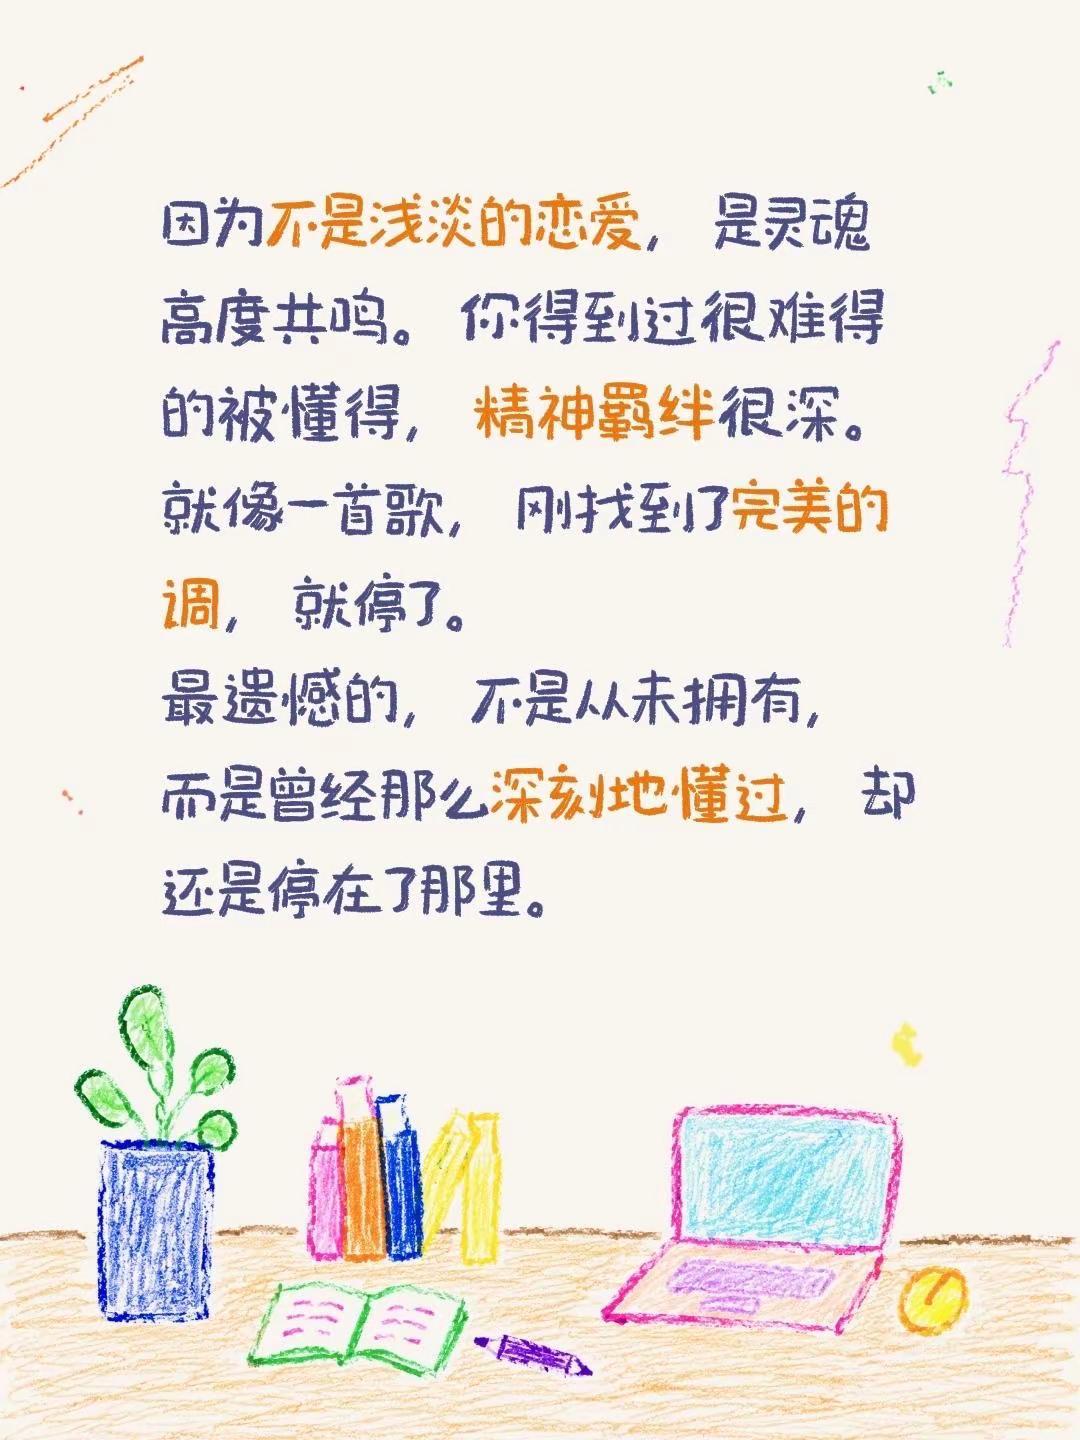 因为不是浅淡的恋爱， 是灵魂
高度共鸣。 你得到过很难得
的被懂得， 精神羁绊很深。
就像一首歌， 刚找到了完美的
调， 就停了。
最遗憾的， 不是从未拥有，
而是曾经那么深刻地懂过， 却
还是停在了那里。